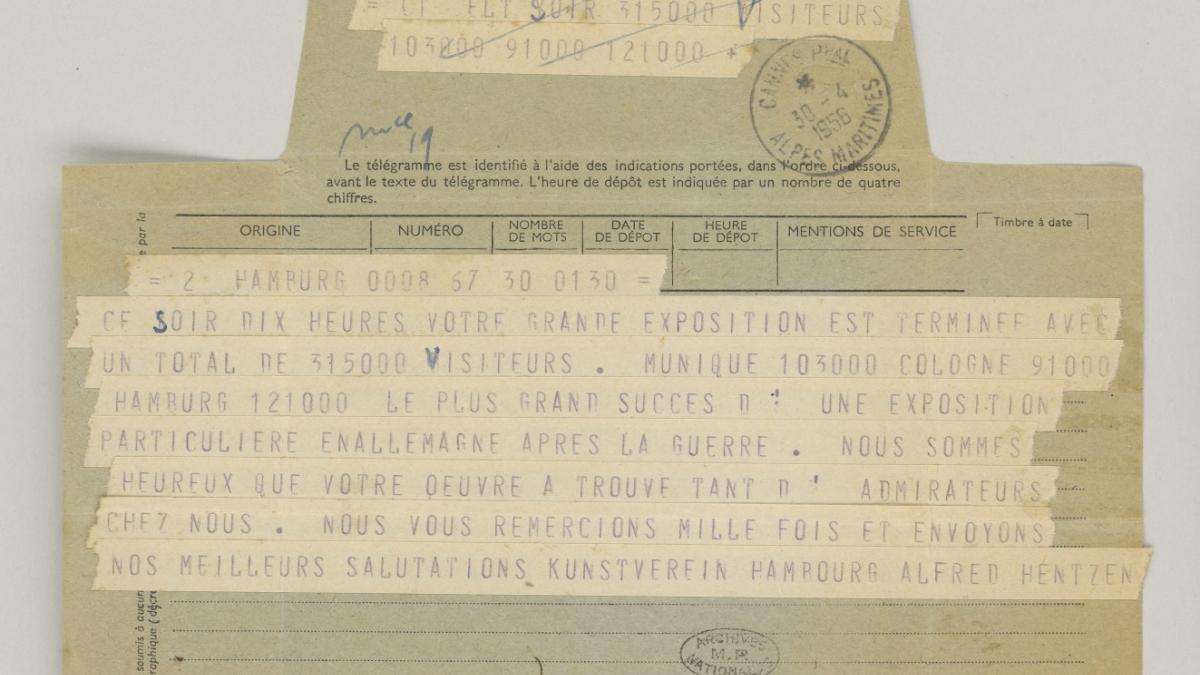 = CT ELT SOIR 315000 VISITEURS
103000 91000 121000 *
CANNES PPAL
30 - 4
1956
ALPES MARITIMES
19
Le télégramme est identifié à l'aide des indications portées, dans l'ordre ci-dessous,
avant le texte du télégramme. L'heure de dépôt est indiquée par un nombre de quatre
chiffres.
ORIGINE NUMÉRO NOMBRE DE MOTS DATE DE DÉPOT HEURE DE DÉPOT MENTIONS DE SERVICE Timbre à date
e par la
= 2 HAMBURG 0008 67 30 0130 =
CE SOIR DIX HEURES VOTRE GRANDE EXPOSITION EST TERMINEE AVEC
UN TOTAL DE 315000 VISITEURS . MUNIQUE 103000 COLOGNE 91000
HAMBURG 121000 LE PLUS GRAND SUCCES D ' UNE EXPOSITION
PARTICULIERE ENALLEMAGNE APRES LA GUERRE . NOUS SOMMES
HEUREUX QUE VOTRE OEUVRE A TROUVE TANT D ' ADMIRATEURS
CHEZ NOUS . NOUS VOUS REMERCIONS MILLE FOIS ET ENVOYONS
NOS MEILLEURS SALUTATIONS KUNSTVEREIN HAMBOURG ALFRED HENTZEN
soumis à aucun
raphique (décre
ARCHIVES
M.P.
NATIONAL